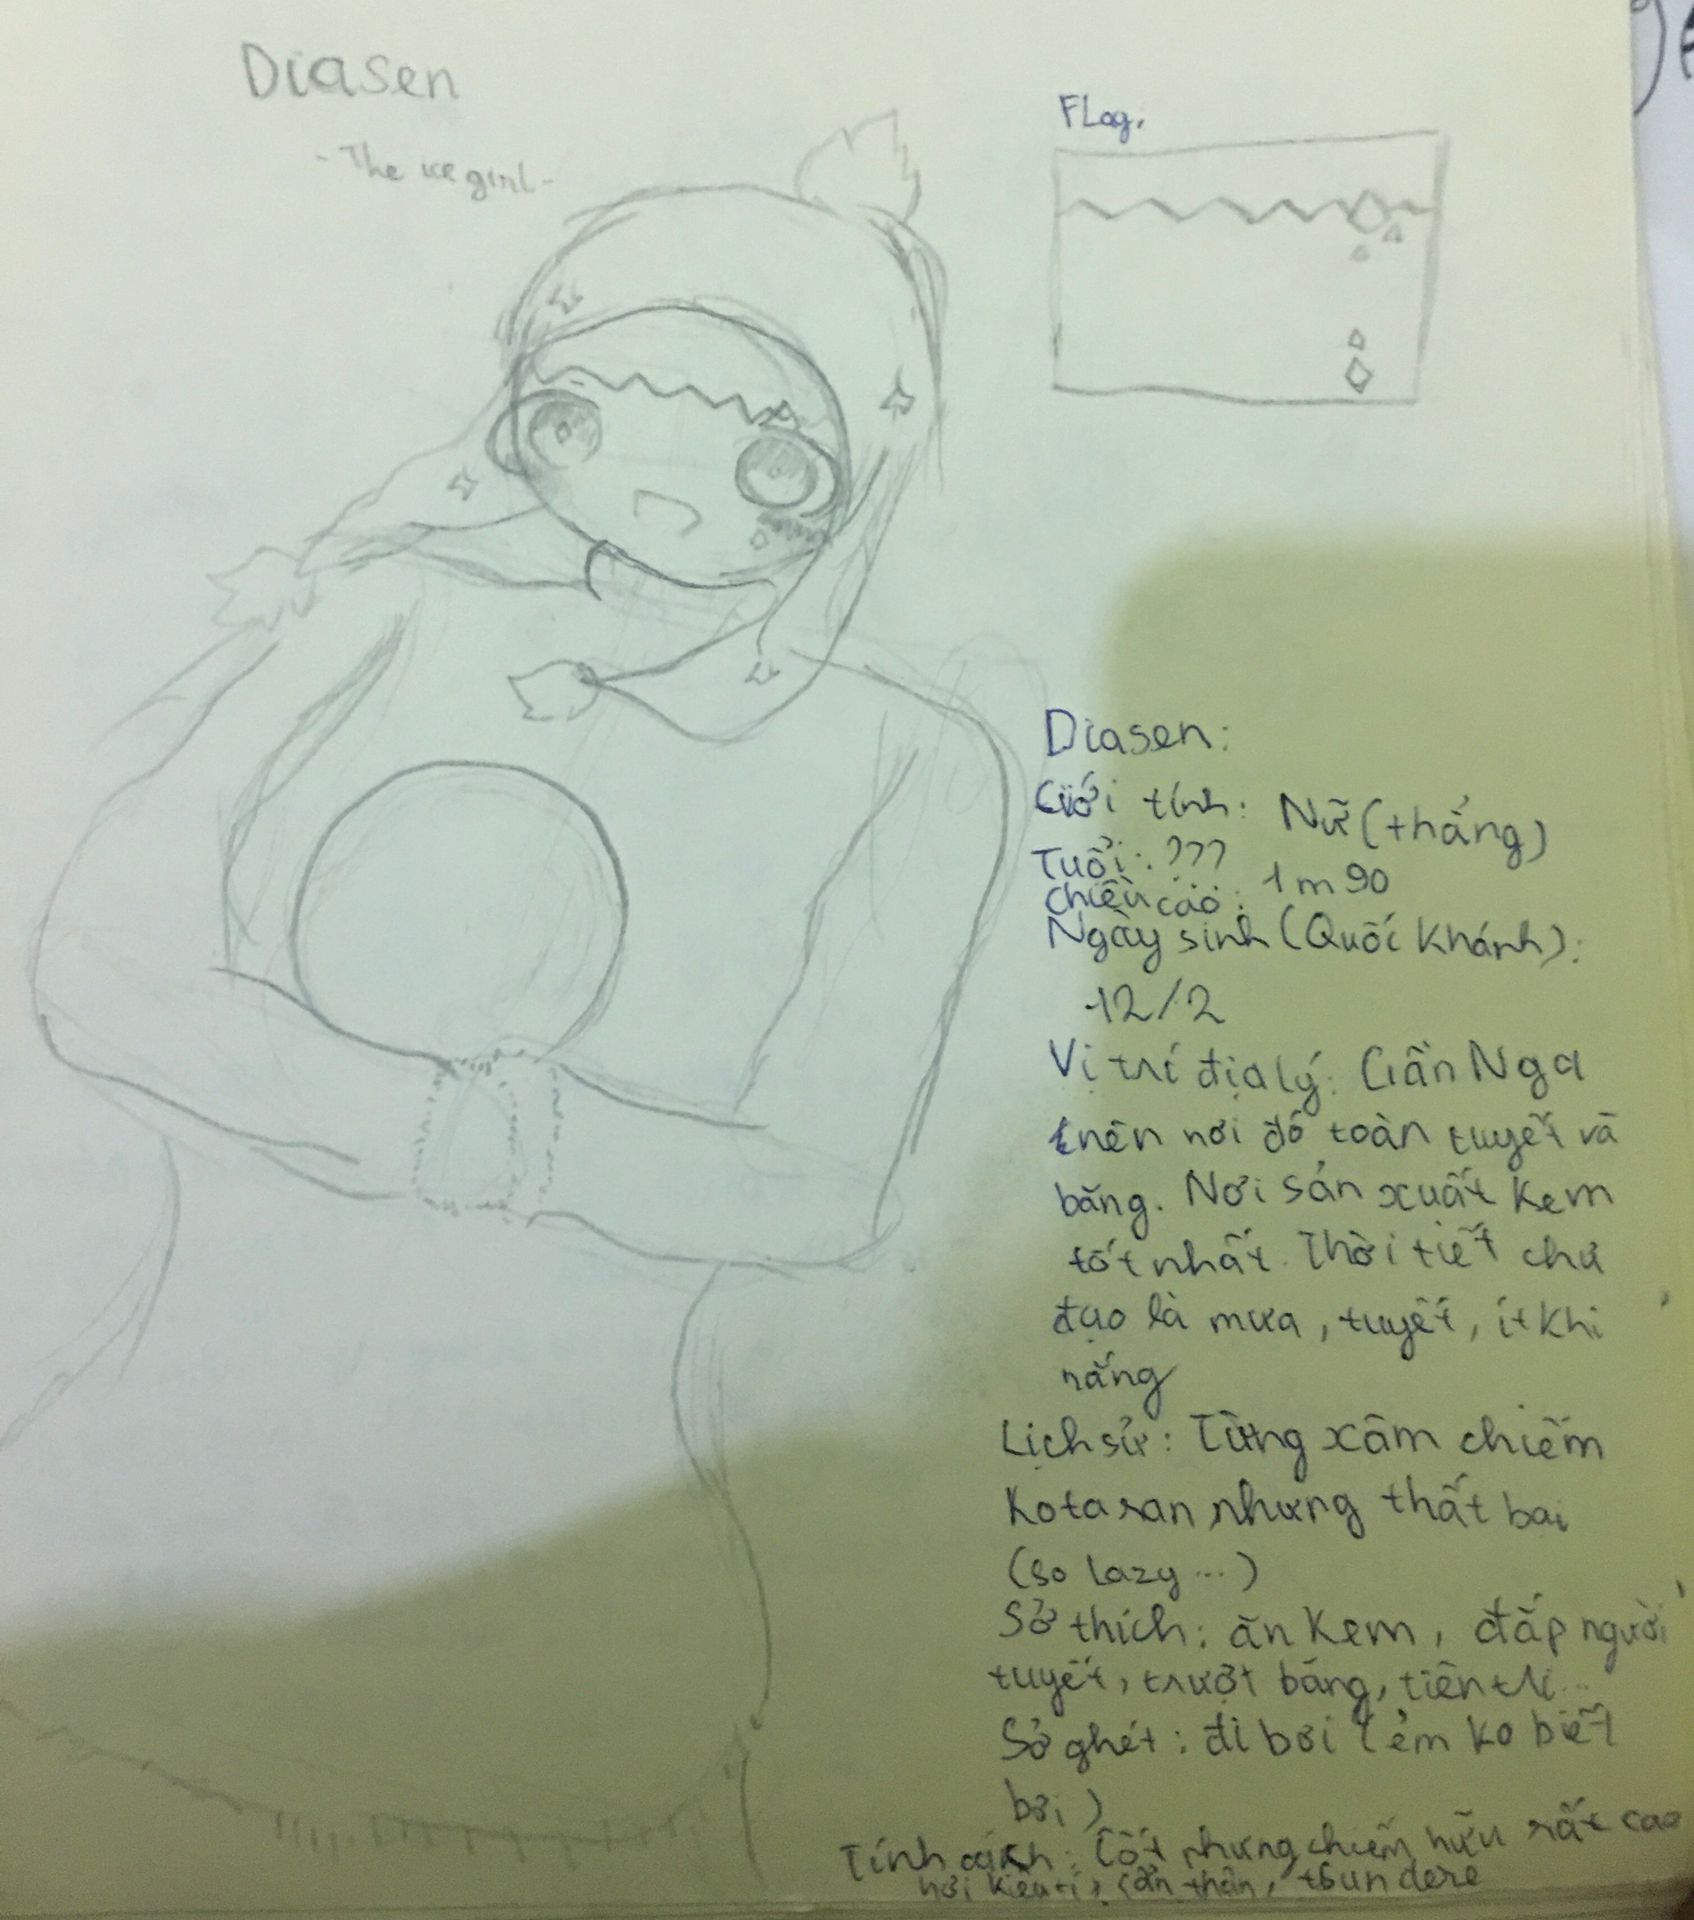 Diasen
- The ice girl -
FLag.
Diasen:
Giới tính: Nữ (thẳng)
Tuổi: ???
chiều cao: 1m90
Ngày sinh (Quốc Khánh):
12/2
Vị trí địa lý: Gần Nga
nên nơi đó toàn tuyết và
băng. Nơi sản xuất Kem
tốt nhất. Thời tiết chủ
đạo là mưa, tuyết, ít khi
nắng
Lịch sử: Từng xâm chiếm
Kotaran nhưng thất bại
(so lazy...)
Sở thích: ăn Kem, đắp người
tuyết, trượt băng, tiên tri...
Sở ghét: đi bơi (ẻm ko biết
bơi)
Tính cách: Tốt nhưng chiếm hữu rất cao
hơi, cẩn thận, tsundere